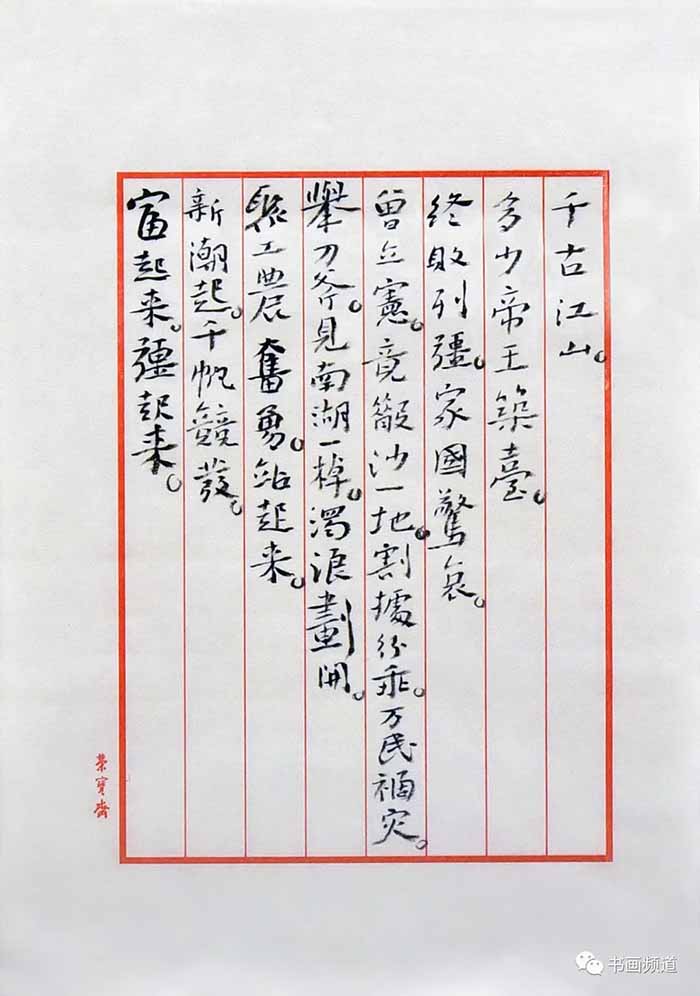 千古江山。
多少帝王築臺。
終敗列彊。家國驚哀。
曾立憲。竟沙一地。割據紛乖。万民禍灾。
舉刀斧。見南湖一棹。濁浪劃開。
聚工農奮勇。站起来。
新潮起。千帆競發。
富起来。彊起来。
榮寶齋
书画频道